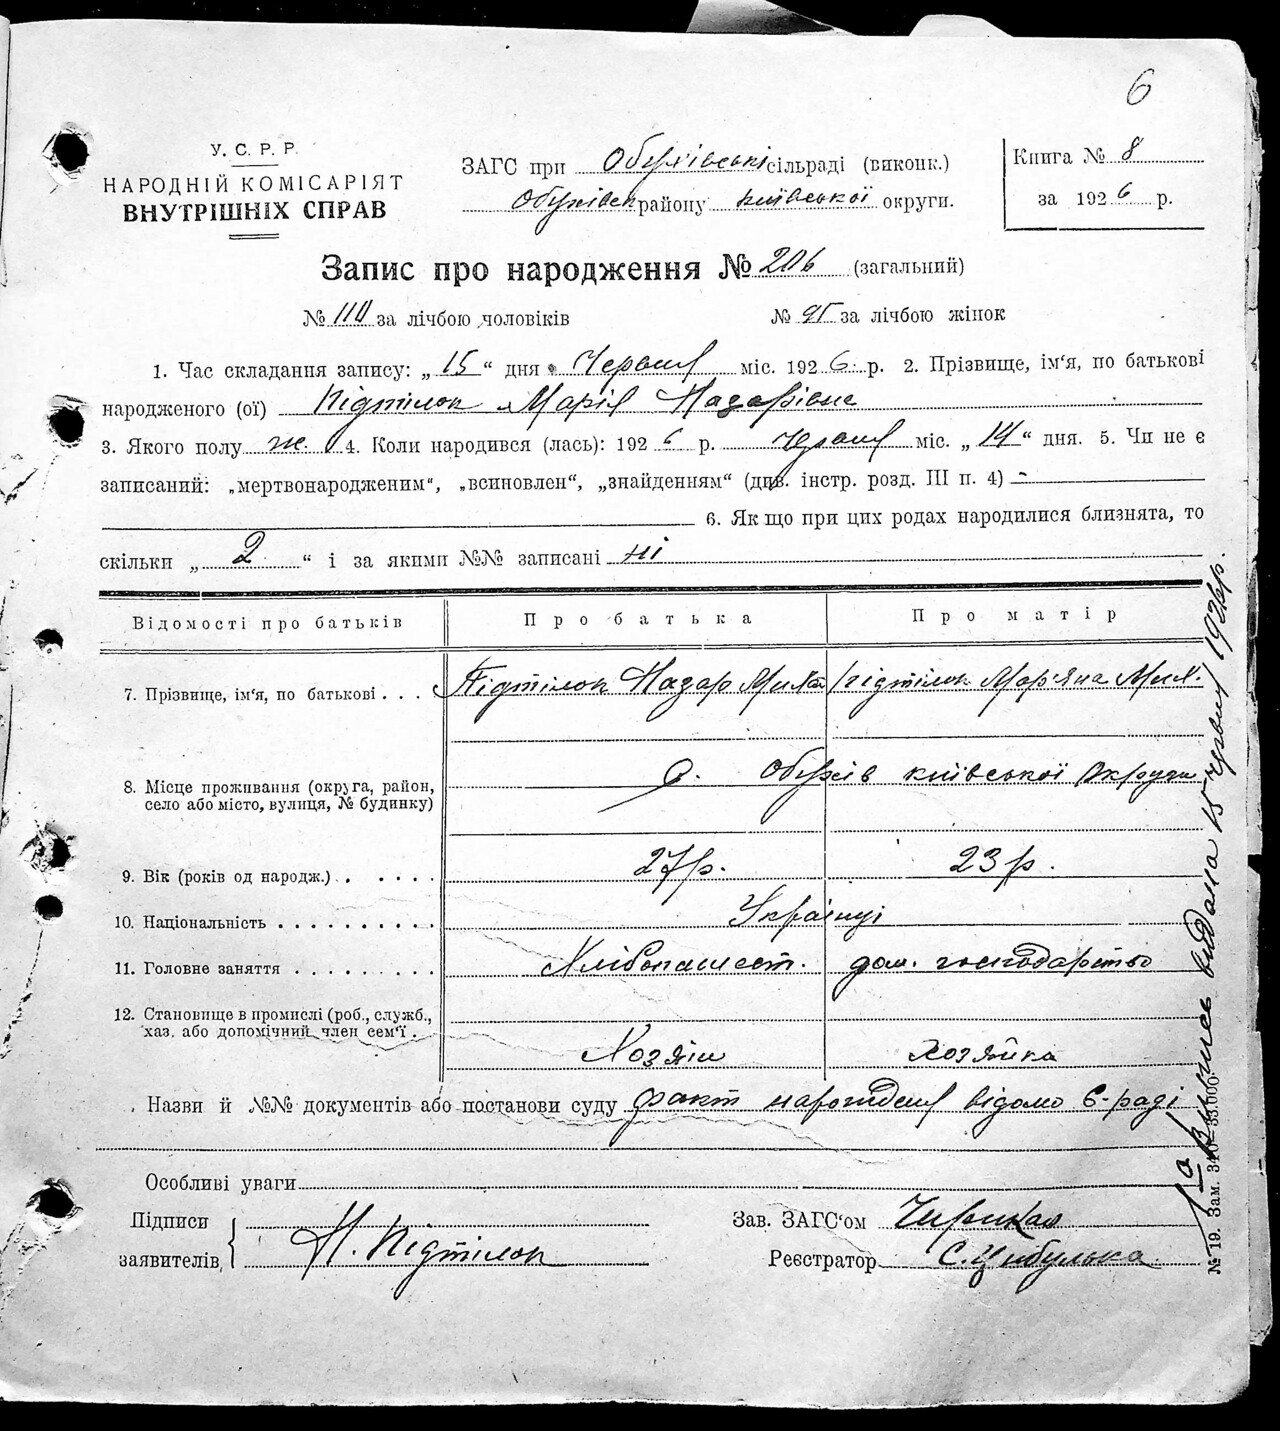 6
У. С. Р. Р.
НАРОДНІЙ КОМІСАРІЯТ
ВНУТРІШНІХ СПРАВ
ЗАГС при Обухівські сільраді (виконк.)
Обухівськ району київської округи.
Книга № 8
за 1926 р.
Запис про народження № 206 (загальний)
№ 110 за лічбою чоловіків № 95 за лічбою жінок
1. Час складання запису: „ 15 “ дня Червня міс. 1926 р. 2. Прізвище, ім‘я, по батькові
народженого (ої) Підтілок Марія Назарівна
3. Якого полу ж. 4. Коли народився (лась): 1926 р. Червня міс. „ 14 “ дня. 5. Чи не є
записаний: „мертвонародженим“, „всиновлен“, „знайденням“ (див. інстр. розд. III п. 4) -
6. Як що при цих родах народилися близнята, то
скільки „ 2 “ і за якими №№ записані ні
Відомості про батьків Про батька Про матір
7. Прізвище, ім‘я, по батькові . . . Підтілок Назар Підтілок Мар'яна
8. Місце проживання (округа, район,
село або місто, вулиця, № будинку)
с. Обухів київської Округи
9. Вік (років од народж.) . . . . . 27 р. 23 р.
10. Національність . . . . . . . . . . Українці
11. Головне заняття . . . . . . . . . Хлібопашест. дом. господарство
12. Становище в промислі (роб., служб.,
хаз. або допомічний член сем‘ї .
Хозяїн хозяйка
Назви й №№ документів або постанови суду факт народження відомо С-раді
Особливі уваги
Підписи
заявителів
Н. Підтілок
Зав. ЗАГС‘ом
Реєстратор С. Цибулька
№ 19. Зам. 340—35.000.
випись видана 15 червня 1926 р.